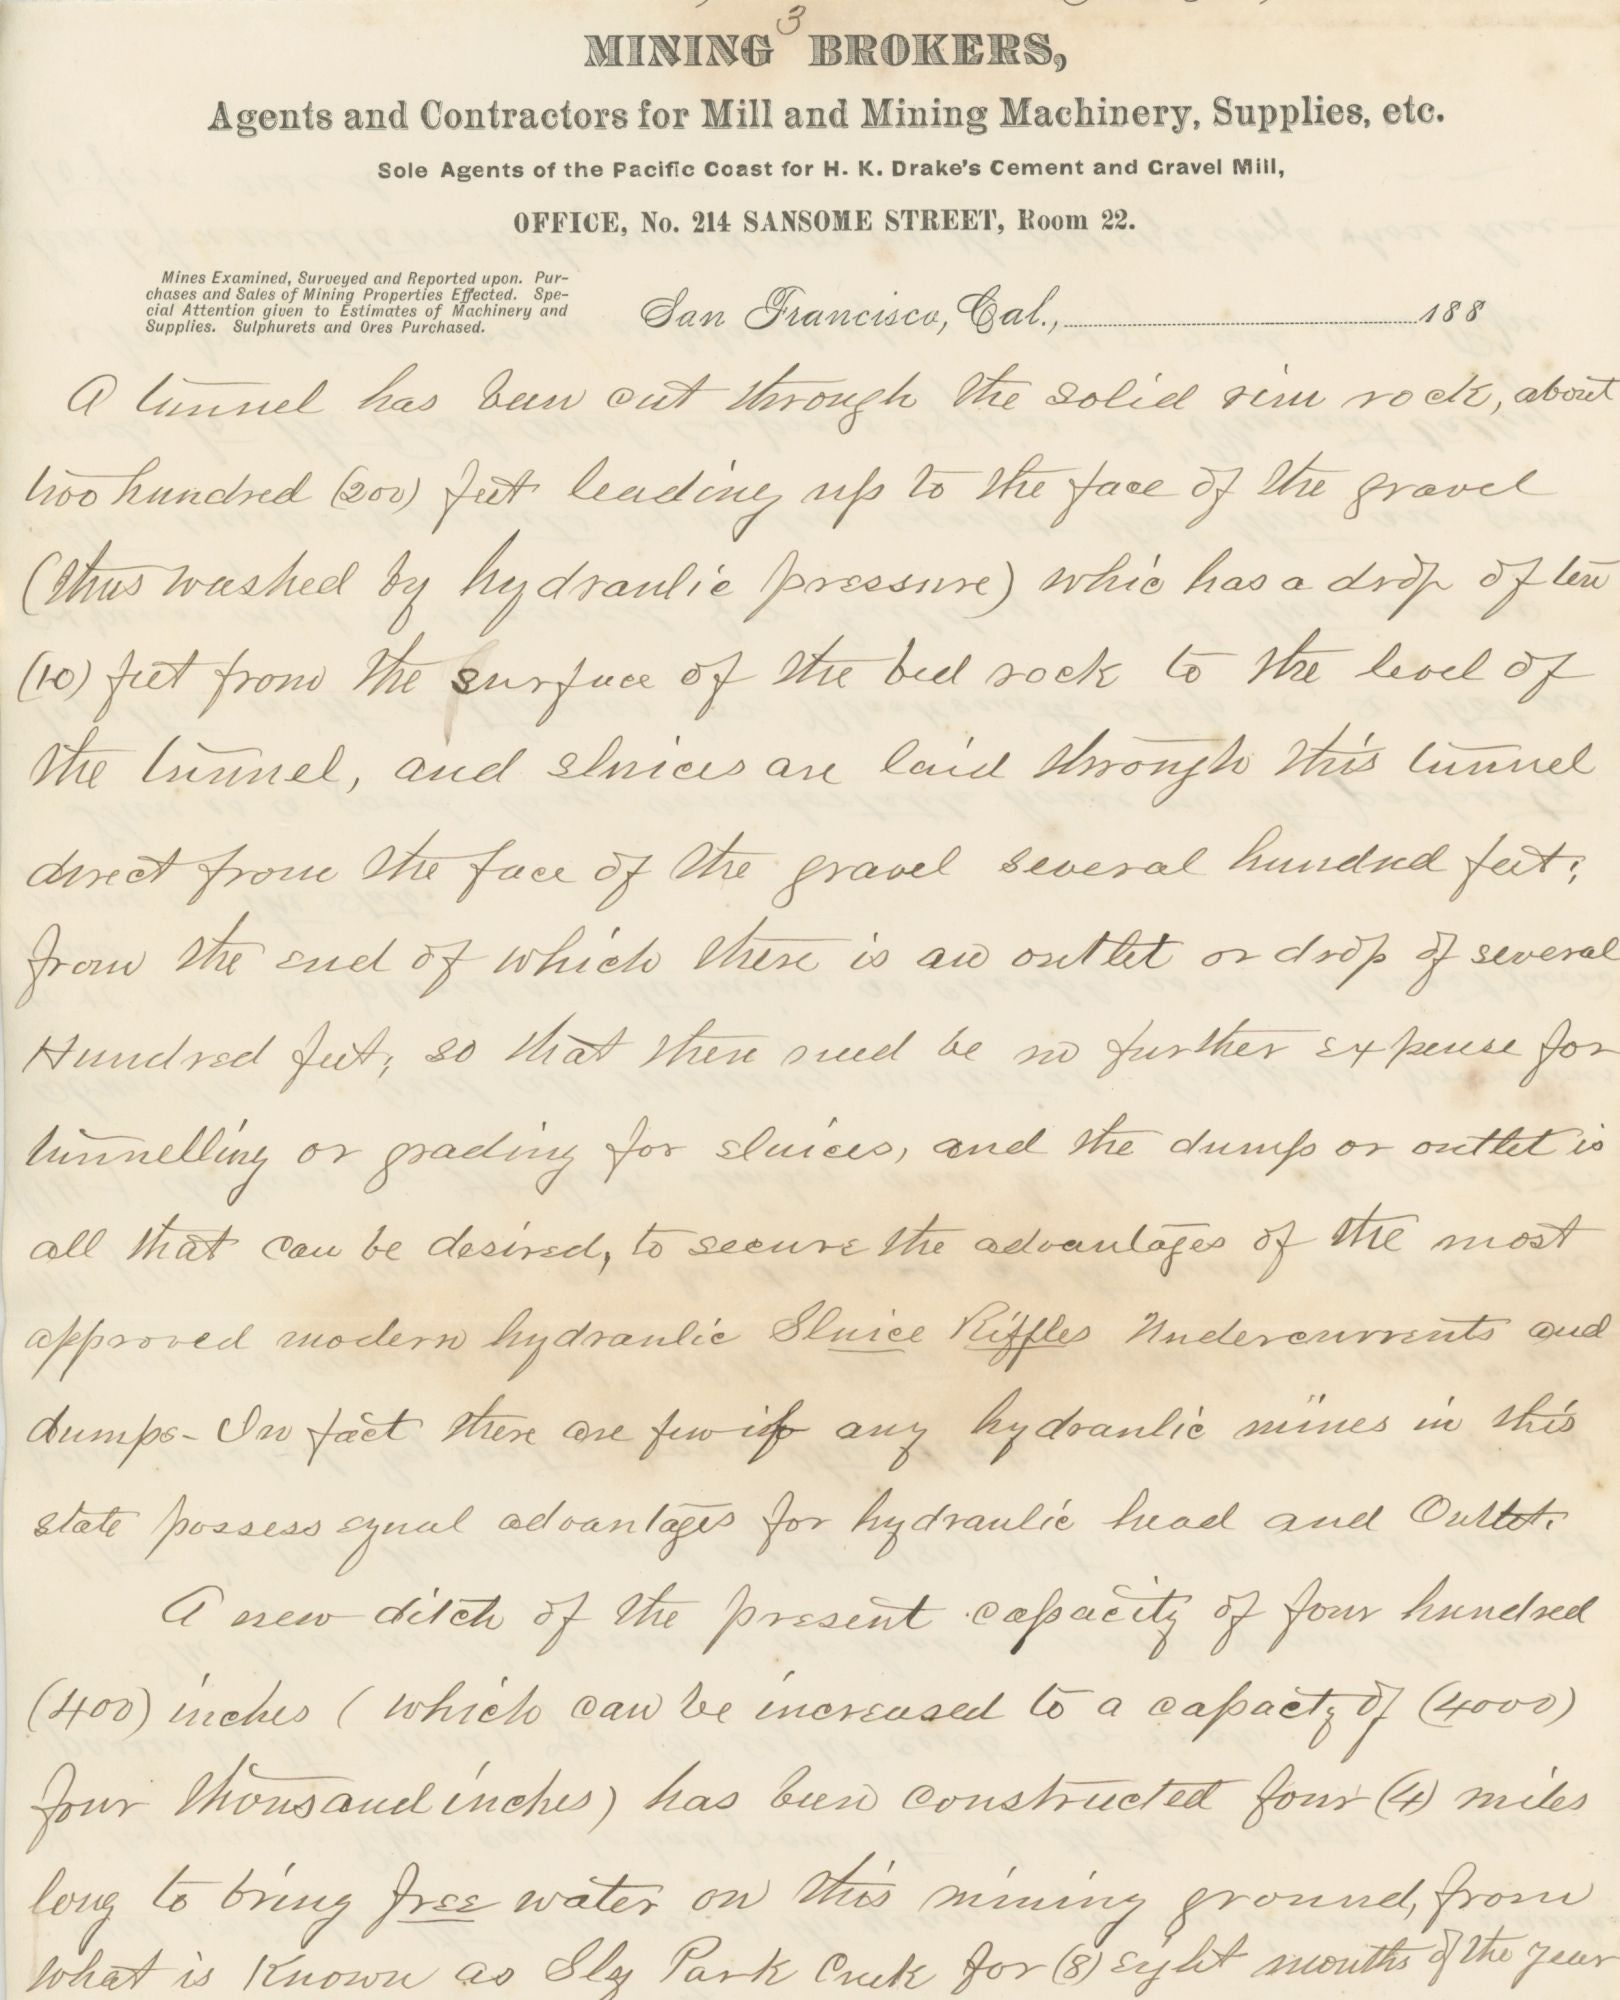 3
MINING BROKERS,
Agents and Contractors for Mill and Mining Machinery, Supplies, etc.
Sole Agents of the Pacific Coast for H. K. Drake's Cement and Gravel Mill,
OFFICE, No. 214 SANSOME STREET, Room 22.
Mines Examined, Surveyed and Reported upon. Pur-
chases and Sales of Mining Properties Effected. Spe-
cial Attention given to Estimates of Machinery and
Supplies. Sulphurets and Ores Purchased.
San Francisco, Cal., 188
A tunnel has been cut through the solid rim rock, about
two hundred (200) feet leading up to the face of the gravel
(thus washed by hydraulic pressure) whic has a drop of ten
(10) feet from the surface of the bed rock to the level of
the tunnel, and sluices are laid through this tunnel
direct from the face of the gravel several hundred feet;
from the end of which there is an outlet or drop of several
Hundred feet; so that there need be no further expense for
tunnelling or grading for sluices, and the dump or outlet is
all that can be desired, to secure the advantages of the most
approved modern hydraulic Sluice Riffles Undercurrents and
dumps - In fact there are few if any hydraulic mines in this
state possess equal advantages for hydraulic head and Outlet.
A new ditch of the present capacity of four hundred
(400) inches (which can be increased to a capacty of (4000)
four thousand inches) has been constructed four (4) miles
long to bring free water on this mining ground, from
what is Known as Sly Park Creek for (8) eight months of the year